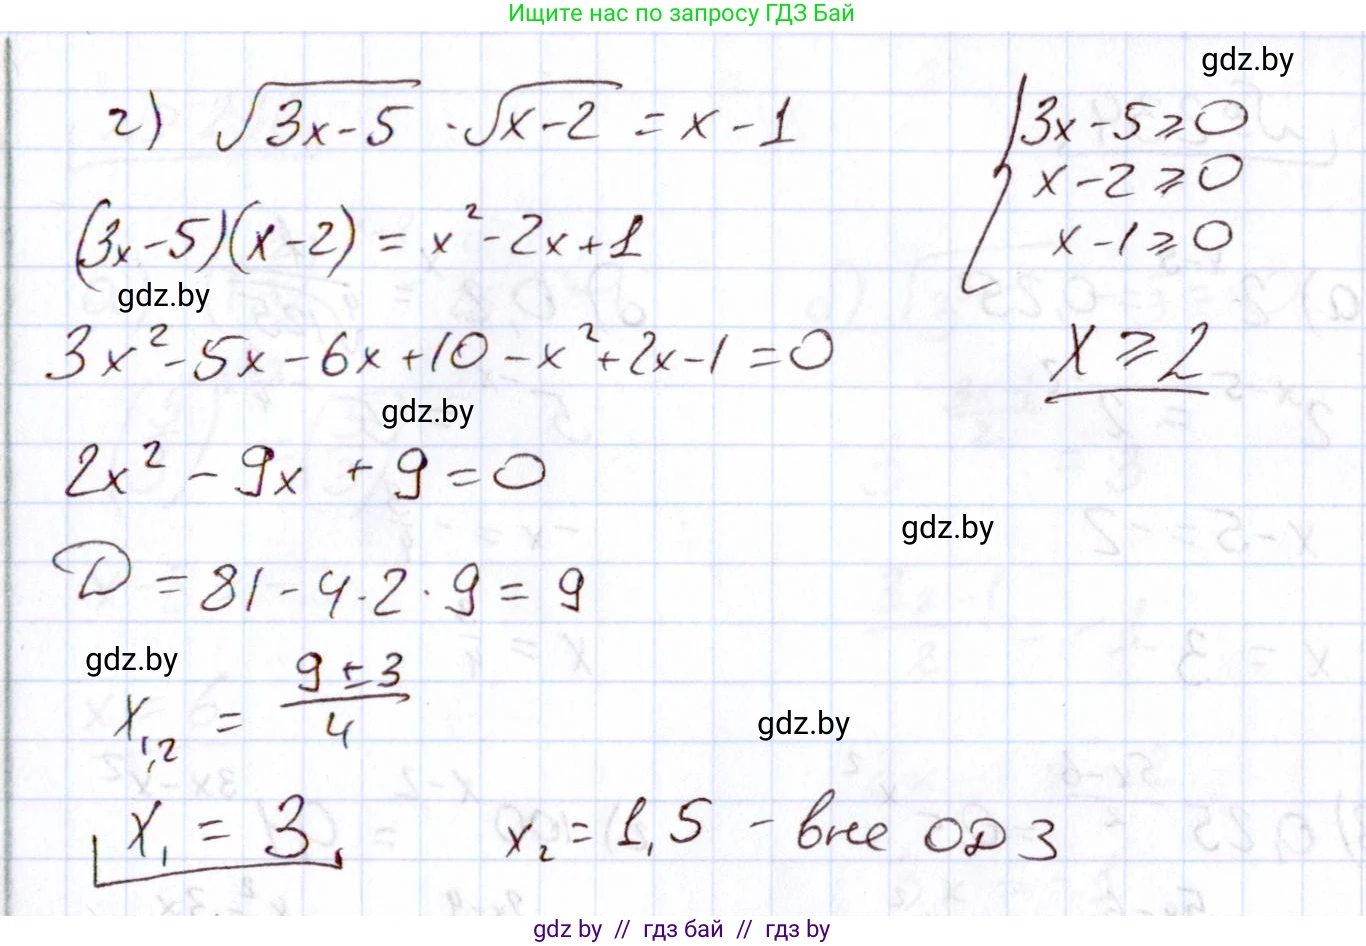 Ищите нас по запросу ГДЗ Бай
gdz.by
г) √(3x-5) · √(x-2) = x - 1
{3x-5≥0
x-2≥0
x-1≥0
x≥2
(3x-5)(x-2) = x²-2x+1
gdz.by
3x²-5x-6x+10-x²+2x-1=0
gdz.by
2x² - 9x + 9 = 0
gdz.by
D = 81 - 4·2·9 = 9
gdz.by
x₁,₂ = (9±3)/4
gdz.by
x₁ = 3, x₂ = 1,5 - вне ОДЗ
gdz.by // гдз бай // гдз by